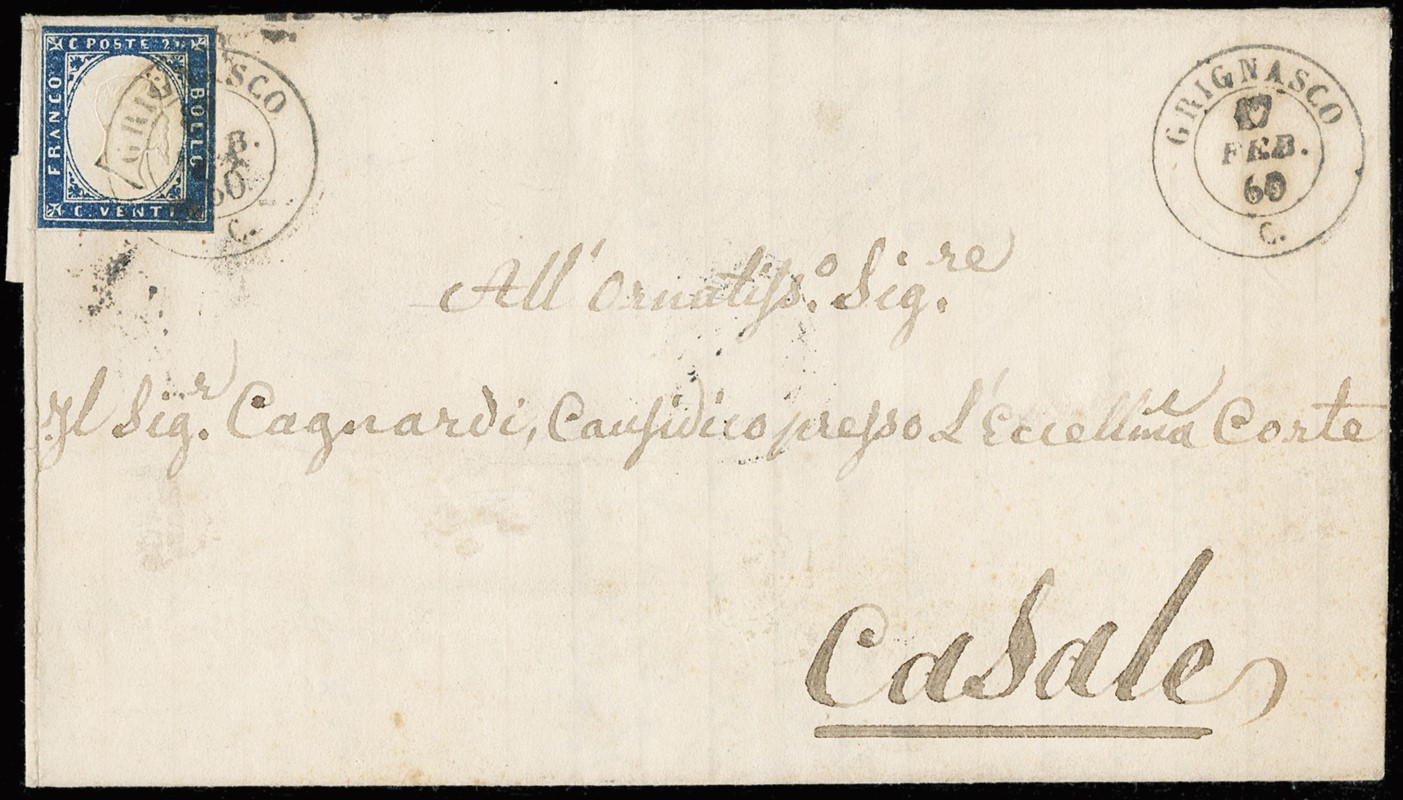 C POSTE 20
FRANCO
BOLLO
C. VENTI
GRIGNASCO
B.
60
C.
GRIGNASCO
FEB.
60
C.
All' Ornatiss.º Sig.re
Il Sig.r Cagnardi, Causidico presso L'Eccell.ma Corte
Casale